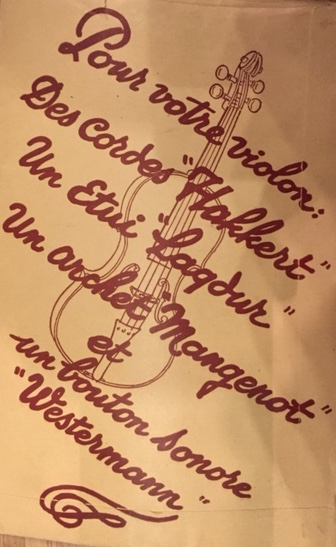 Pour votre violon:
Des Cordes "Hakkert"
Un Etui "Laqdur"
Un archet "Mangenot"
et
un bouton sonore
"Westermann"